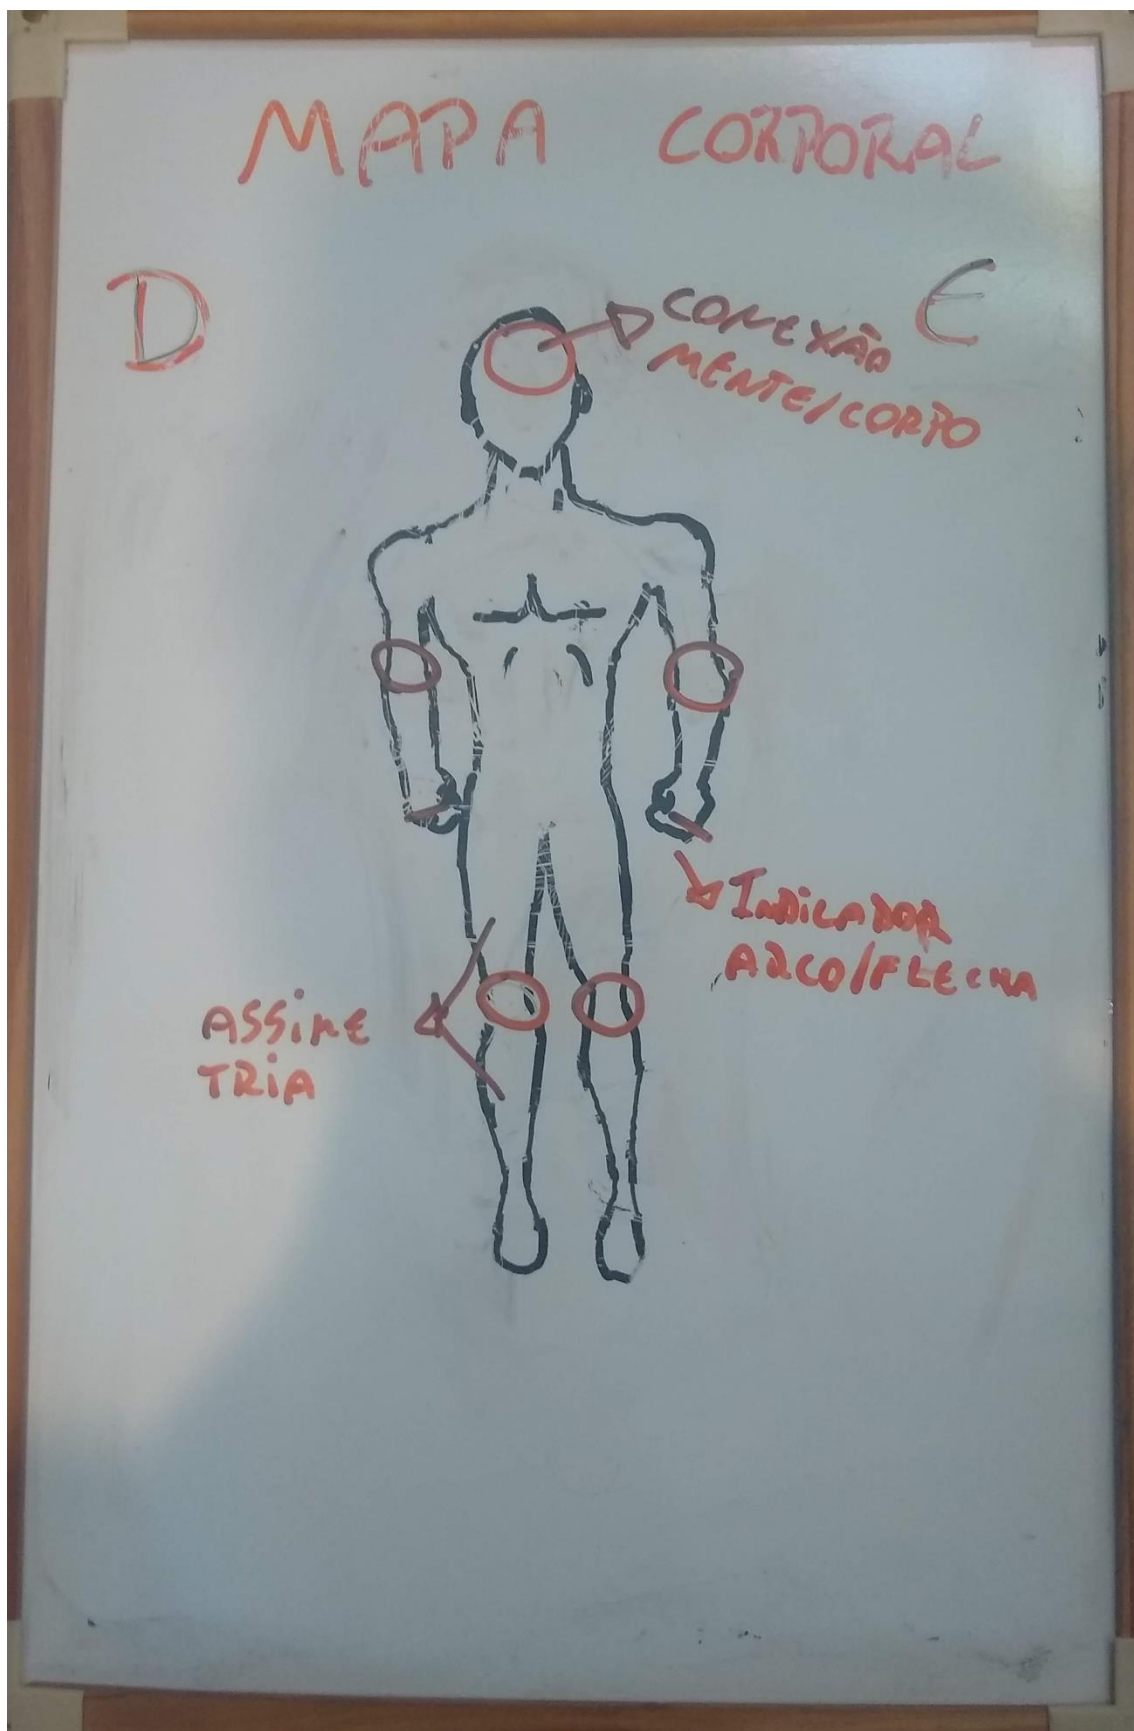 MAPA CORPORAL
D
E
CONEXÃO
MENTE/CORPO
INDICADOR
ARCO/FLECHA
ASSIME
TRIA